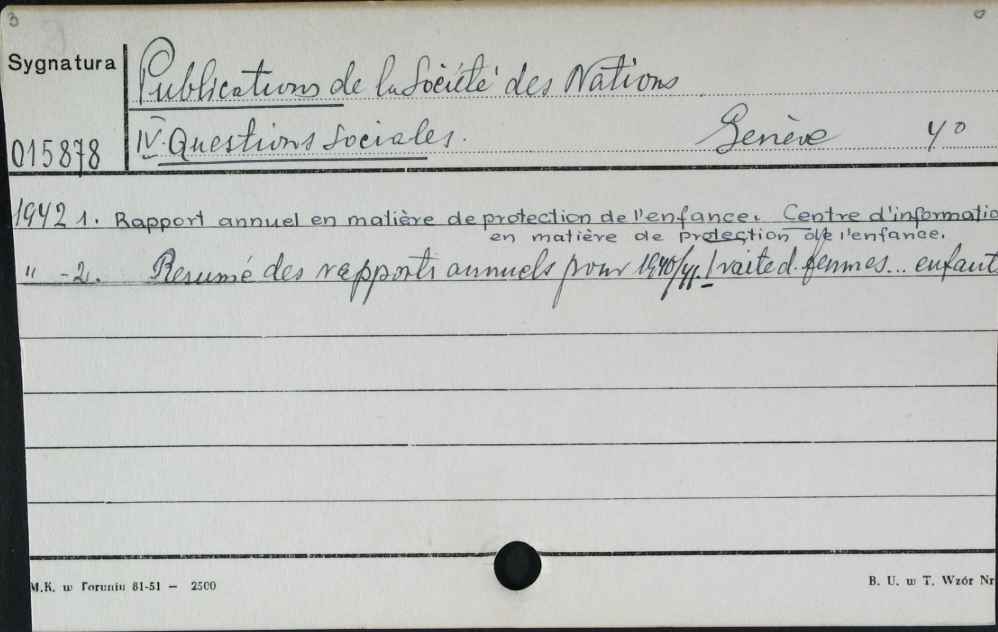 3 0
Sygnatura
Publications de la Société des Nations
015878
IV. Questions Sociales. Genève 4°
1942 1. Rapport annuel en matière de protection de l'enfance. Centre d'informatio
en matière de protection de l'enfance.
" -2. Resumé des rapports annuels pour 1940/41. Traite d. femmes... enfant
M.K. w Toruniu 81-51 — 2500
B. U. w T. Wzór Nr